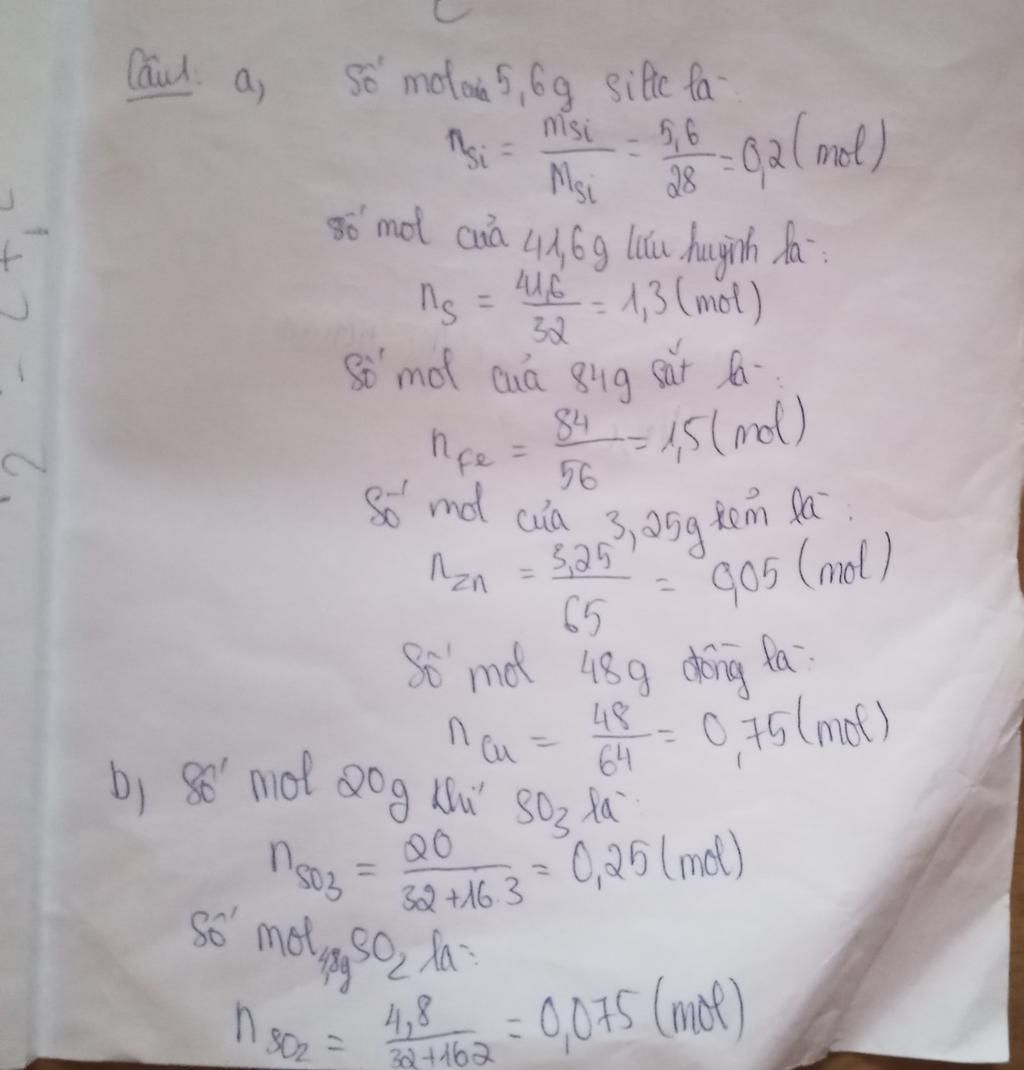 Câu1: a, Số mol của 5,6g silic là:
nSi = mSi/MSi = 5,6/28 = 0,2 (mol)
Số mol của 41,6g lưu huỳnh là:
nS = 41,6/32 = 1,3 (mol)
Số mol của 84g sắt là:
nFe = 84/56 = 1,5 (mol)
Số mol của 3,25g kẽm là:
nZn = 3,25/65 = 0,05 (mol)
Số mol 48g đồng là:
nCu = 48/64 = 0,75 (mol)
b, Số mol 20g khí SO3 là:
nSO3 = 20/32+16.3 = 0,25 (mol)
Số mol 4,8g SO2 là:
nSO2 = 4,8/32+16.2 = 0,075 (mol)